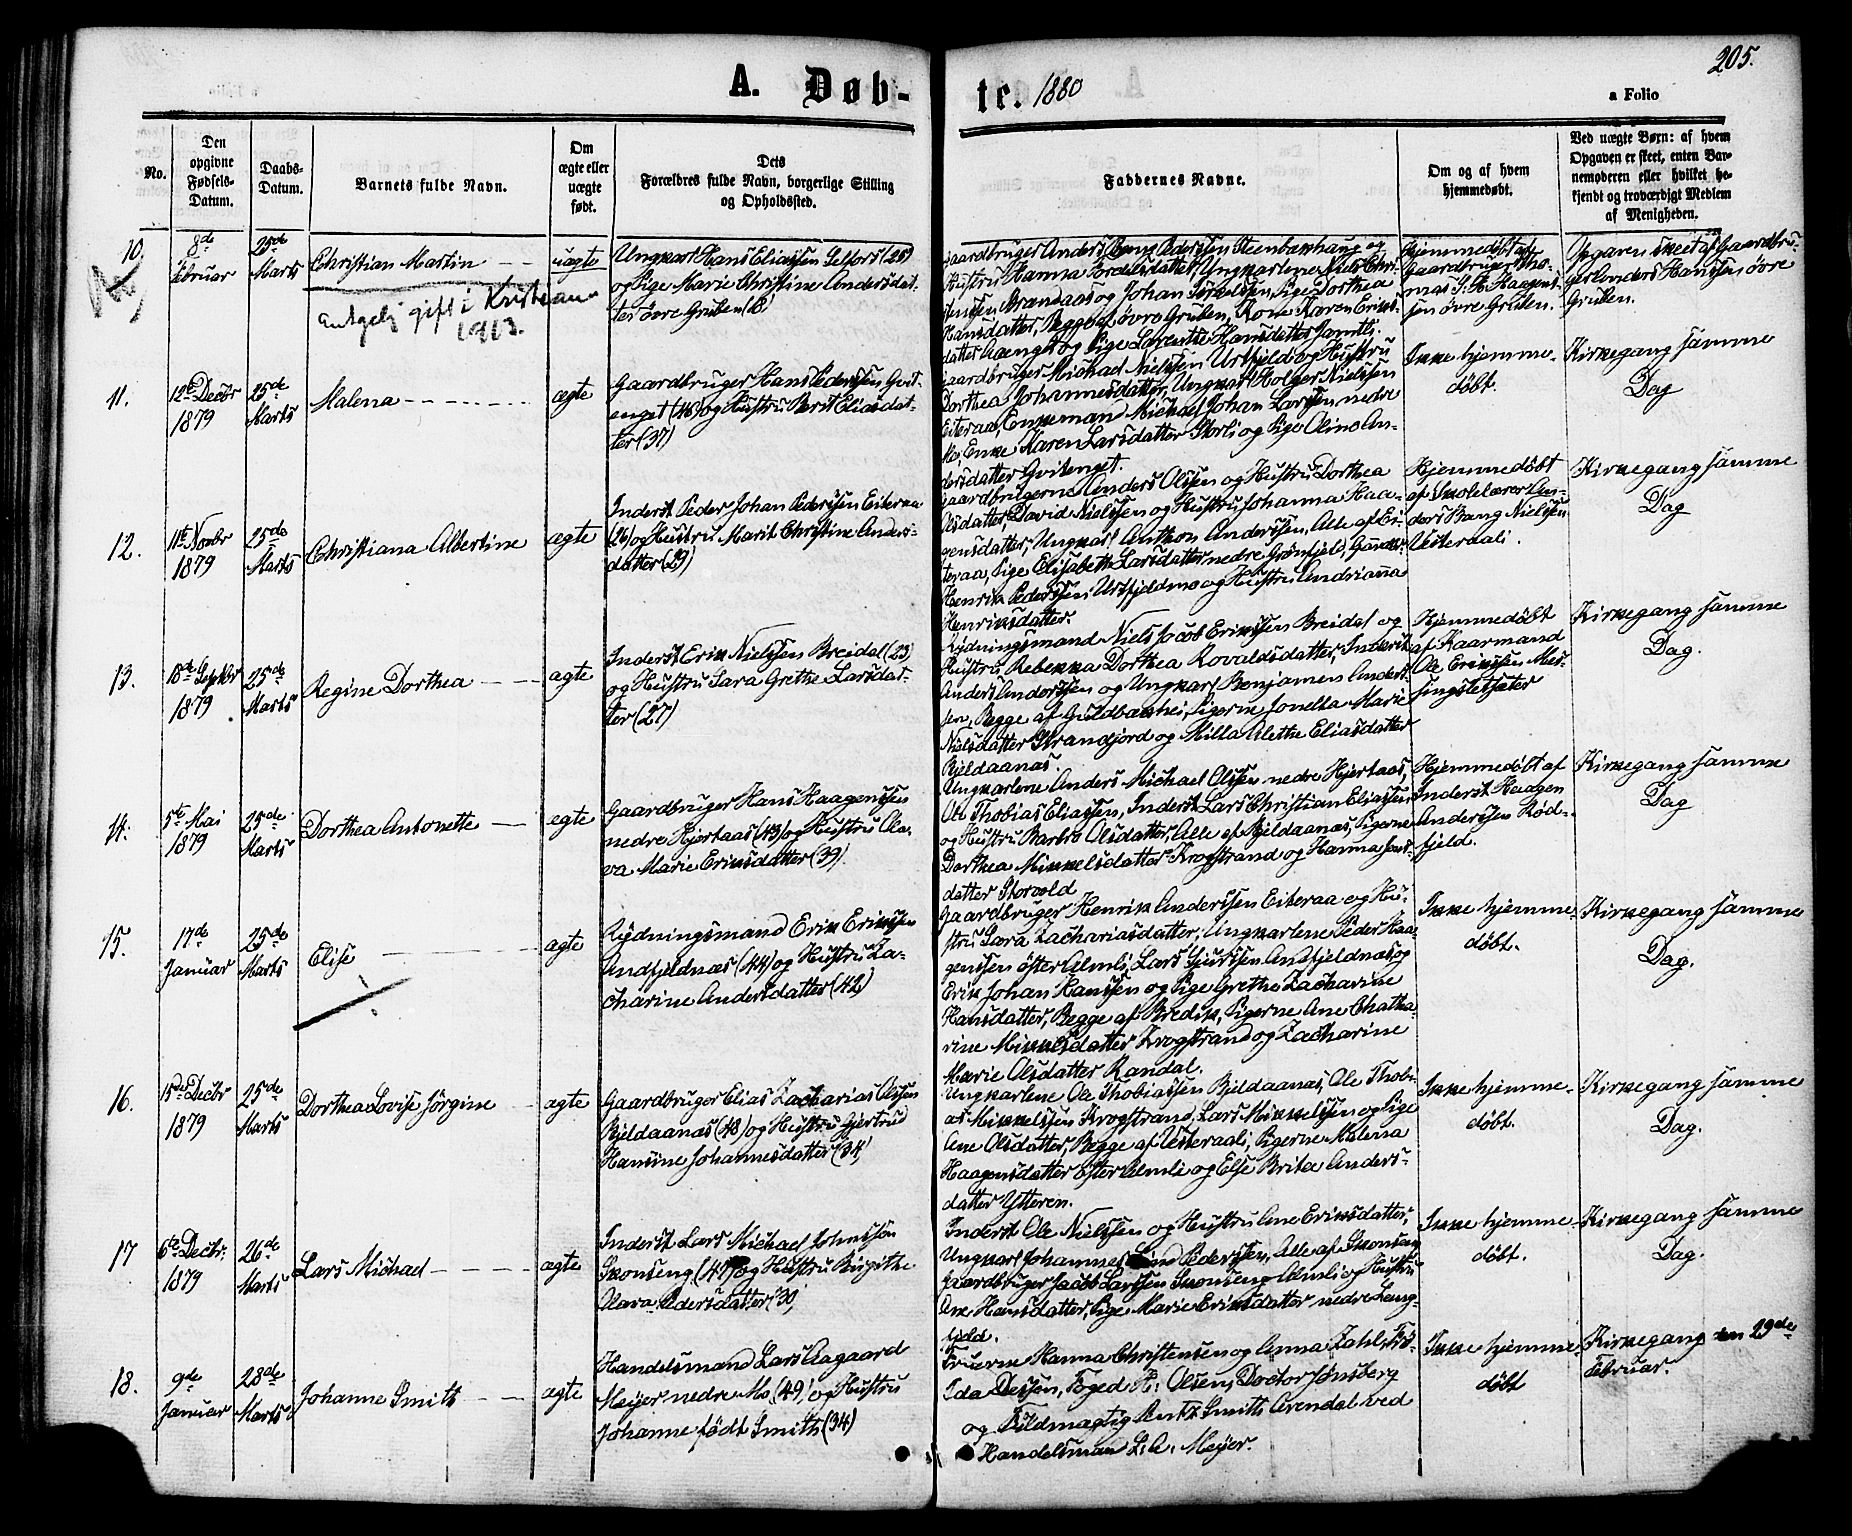 205.
A. Døb- te. 1880
a Folio
No.
Den opgivne Fødsels-Datum.
Daabs-Datum.
Barnets fulde Navn.
Om ægte eller uægte født.
Dets Forældres fulde Navn, borgerlige Stilling og Opholdssted.
Faddernes Navne.
Om og af hvem hjemmedøbt.
Ved uægte Børn: af hvem Opgaven er skeet, enten Barnemoderen eller hvilket bekjendt og troværdigt Medlem af Menigheden.
10
8de Februar
25de Marts
Christian Martin
antgelj gift i Kristian
1913.
uægte
Ungkarl Hans Eliassen Selfors (25)
og Pige Marie Christine Andersdat-
ter øvre Gruben
Gaardbruger Anders Bang Pedersen Steenbækhaug og
Hustru Hanna Tordelsdatter, Ungkarlene Niels Chri-
stensen Brandaas og Johan Siversen, Pige Dorthea
Hansdatter, Begge af øvre Gruben, Kone Karen Eriks-
datter Aenget og Pige Lorentse Hansdatter Jamtli.
Hjemmedøbt af
Gaardbruger Tho-
mas S. H. Haagens-
sen øvre Gruben.
Opgaven skeet af Gaardbru-
ger Anders Hanssen øvre
Gruben.
11.
12te Decbr 1879
25de Marts
Malena
ægte
Gaardbruger Hans Pedersen Hvit-
enget (46) og Hustru Berit Eliasdat-
ter (37)
Gaardbruger Michael Nielsen Urtfjeld og Hustru
Dorthea Johannesdatter, Ungkarl Holger Nielssen
Eiteraa, Enkemand Michael Johan Larssen nedre
Mo, Enke Karen Larsdatter Storli og Pige Oline An-
dersdatter Hvitenget.
Ikke hjemme-
døbt.
Kirkegang samme
Dag
12.
11te Novbr 1879
25de Marts
Christiana Albertine
ægte
Inderst Peder Johan Pederssen Eiteraa
(26) og Hustru Marit Christine Anders-
datter (29)
Gaardbrugerne Anders Olssen og Hustru Dorthea
Olsdatter, David Nielssen og Hustru Johanna Haa-
gensdatter, Ungkarl Anthon Anderssen, Alle af Ei-
teraa, Pige Elisabeth Larsdatter nedre Grønfjeld, Gaardbr.
Henrik Pederssen Urtfjeldmo og Hustru Andrianna
Henriksdatter.
Hjemmedøbt
af Skolelærer An-
ders Bang Nielssen
Uiteraali.
Kirkegang samme
Dag
13.
18de Septbr 1879
25de Marts
Regine Dorthea
ægte
Inderst Erik Nielssen Breidal (23)
og Hustru Sara Grethe Larsdat-
ter (27)
Rydningsmand Niels Jacob Erikssen Breidal og
Hustru Rebekka Dorthea Rovaldsdatter, Inderst
Anders Anderssen og Ungkarl Benjamen Anders-
sen, Begge af Guldbakhei, Pigerne Jonetta Marie
Nielsdatter Strandjord og Milla Alethe Eliasdatter
Bjeldaanæs.
Hjemmedøbt
af Kaarmand
Ole Erikssen Mes-
singsletsæter
Kirkegang samme
Dag.
14.
5te Mai 1879
25de Marts
Dorthea Antonette
ægte
Gaardbruger Hans Haagenssen
nedre Hjertaas (43) og Hustru Ola-
va Marie Eriksdatter (39)
Ungkarlene Anders Michael Olssen nedre Hjertaas,
Ole Thobias Eliassen, Inderst Lars Christian Eliassen
og Hustru Barbro Olsdatter, Alle af Bjeldaanæs, Pigerne
Dorthea Mikkelsdatter Krogstrand og Hanna Jens-
datter Storvold
Hjemmedøbt af
Inderst Haagen
Anderssen Rød-
fjeld.
Kirkegang samme
Dag
15.
17de Januar
25de Marts
Elise
ægte
Rydningsmand Erik Erikssen
Andfjeldnæs (44) og Hustru Za-
charine Andersdatter (42)
Gaardbruger Henrik Anderssen Eiteraa og Hu-
stru Sara Zachariasdatter, Ungkarlene Peder Haa-
genssen øfter Almli, Lars Sjurssen Andfjeldnæs og
Erik Johan Hanssen og Pige Grethe Zacharine
Hansdatter, Begge af Bredik, Pigerne Ane Chatha-
rine Mikkelsdatter Krogstrand og Zacharine
Marie Olsdatter Randal.
Ikke hjemme-
døbt.
Kirkegang samme
Dag.
16.
15de Decbr 1879
25de Marts
Dorthea Lovise Jørgine
ægte
Gaardbruger Elias Zacharias Olssen
Bjeldaanæs (48) og Hustru Gjertrud
Hansine Johannesdatter (34)
Ungkarlene Ole Thobiassen Bjeldaanæs, Ole Thobi-
as Mikkelssen Krogstrand, Lars Mikkelssen og Pige
Ane Olsdatter, Begge af Uiteraali, Pigerne Malena
Haagensdatter øfter Almli og Else Brita Anders-
datter Ytteren.
Ikke hjemme-
døbt.
Kirkegang samme
Dag.
17
6te Decbr. 1879
26de Marts
Lars Michael
ægte
Inderst Lars Michael Johnssøn
Skonseng (47) og Hustru Birgithe
Olava Pedersdatter (30)
Inderst Ole Nielssen og Hustru Ane Eriksdatter,
Ungkarl Johannes Lind Pederssen, Alle af Skonseng
Gaardbruger Jacob Larssen Skonseng Almli og Hustru
Ane Hansdatter, Pige Marie Eriksdatter nedre Lang-
fjeld.
Ikke hjemme-
døbt.
Kirkegang samme
Dag.
18.
9de Januar
28de Marts
Johanne Smith
ægte
Handelsmand Lars Aagaard
Meyer nedre Mo (49) og Hustru
Johanne født Smith (34)
Fruerne Hanna Christensen og Anna Zahl, Frø-
Ida Dessen, Foged H. Olsen, Doctor Jønsberg
og Fuldmægtig Bentz Smith Arendal ved
Handelsman L. A. Meyer.
Ikke hjemme-
døbt
Kirkegang den 29de
Februar.